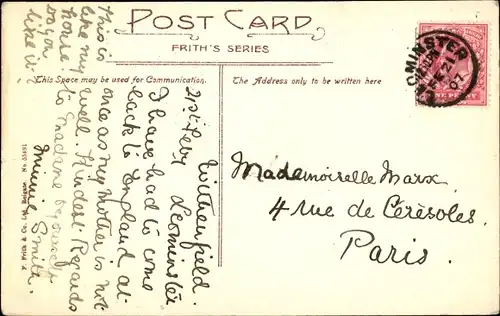 POST CARD
FRITH'S SERIES
This Space may be used for Communication.
The Address only to be written here
21st Febr
Leominster
I have had to come
back to England at
once as my mother is not
well. Kindest Regards
to Madame & yourself
Minnie Smith.
This is
like my
house
do you
like it?
Mademoiselle Marx.
4 rue de Cérésoles.
Paris.
MINSTER
FE 21
07
ONE PENNY